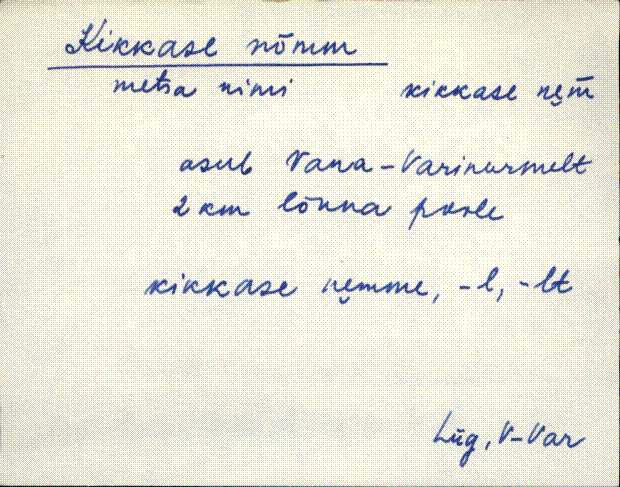 Kikkase nõmm
metsa nimi kikkase ne̮m̄
asub Vana-Varinurmelt
2 km lõuna poole
kikkase ne̮mme, -l, -lt
Lüg, V-Var